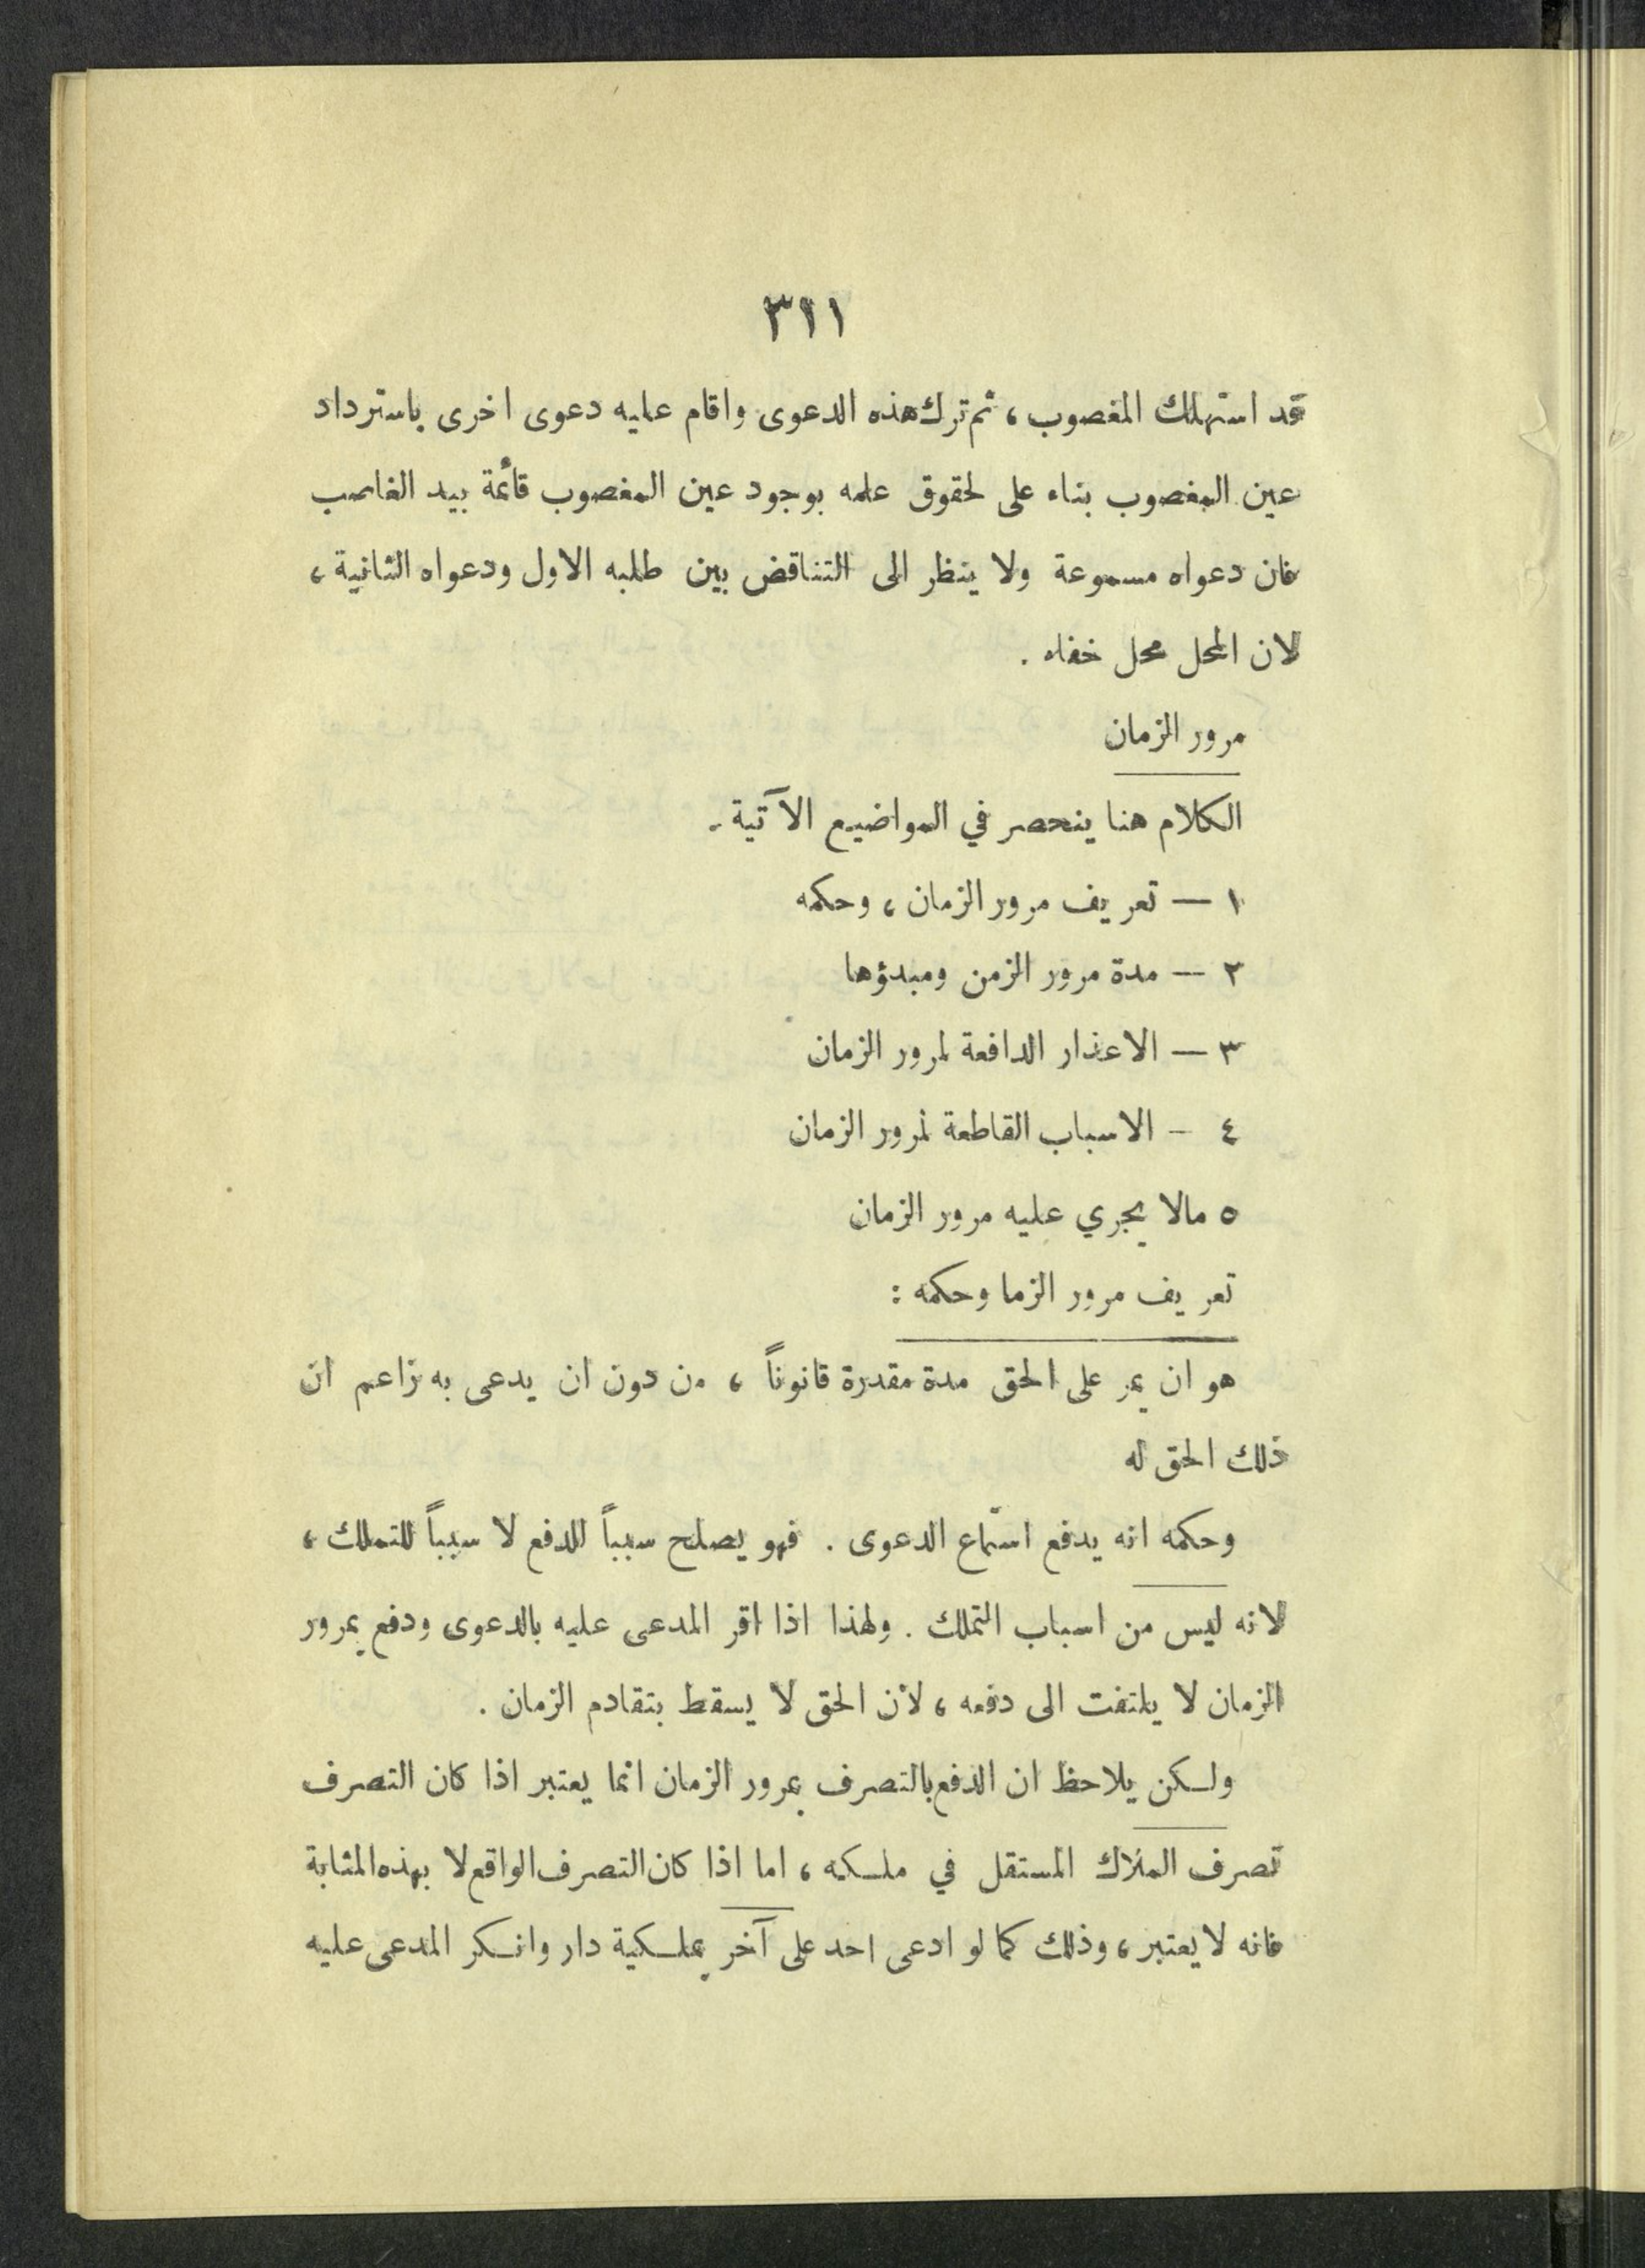 ٣١١
قد استهلك المغصوب ، ثم ترك هذه الدعوى واقام عليه دعوى اخرى باسترداد
عين المغصوب بناء على لحقوق علمه بوجود عين المغصوب قائمة بيد الغاصب
فان دعواه مسموعة ولا ينظر الى التناقض بين طلبه الاول ودعواه الثانية ،
لان المحل محل خفاء .
مرور الزمان
الكلام هنا ينحصر في المواضيع الآتية .
١ — تعريف مرور الزمان ، وحكمه
٢ — مدة مرور الزمن ومبدؤها
٣ — الاعذار الدافعة لمرور الزمان
٤ - الاسباب القاطعة لمرور الزمان
٥ مالا يجري عليه مرور الزمان
تعريف مرور الزما وحكمه :
هو ان يمر على الحق مدة مقدرة قانوناً ، من دون ان يدعى به زاعم ان
ذلك الحق له
وحكمه انه يدفع استماع الدعوى . فهو يصلح سبباً للدفع لا سبباً للتملك ،
لانه ليس من اسباب التملك . ولهذا اذا اقر المدعى عليه بالدعوى ودفع بمرور
الزمان لا يلتفت الى دفعه ، لأن الحق لا يسقط بتقادم الزمان .
ولكن يلاحظ ان الدفع بالتصرف بمرور الزمان انما يعتبر اذا كان التصرف
تصرف الملاك المستقل في ملكه ، اما اذا كان التصرف الواقع لا بهذه المثابة
فانه لا يعتبر ، وذلك كما لو ادعى احد على آخر بملكية دار وانكر المدعى عليه